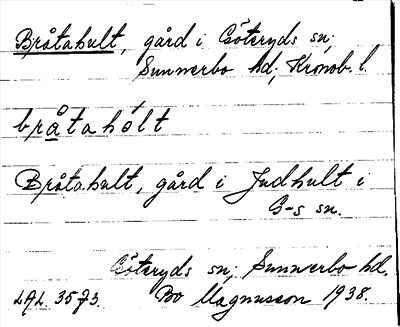 Bråtahult, gård i Göteryds sn;
Sunnerbo hd; Kronob. l.
bråtahólt
Bråtahult, gård i Judhult i
G-s sn.
Göteryds sn; Sunnerbo hd.
LAL. 3573. Bo Magnusson 1938.